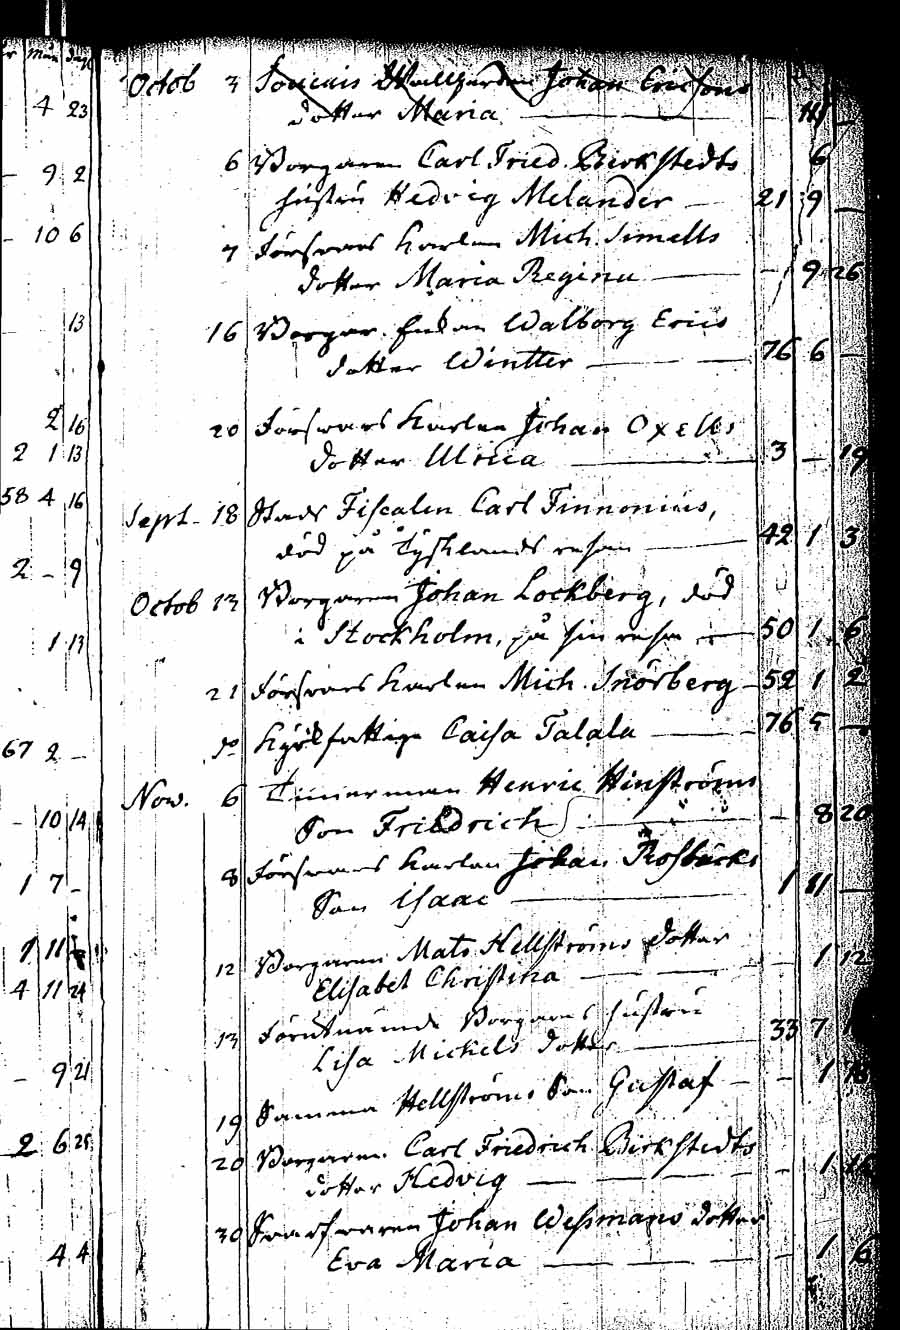 r Mån dag
4 23
9 2
10 6
13
2 16
2 1 13
58 4 16
2 - 9
1 13
67 2 -
- 10 14
1 7 -
1 11
4 11 24
- 9 21
2 6 25
4 4
Octob 3 Johan Ericsons
dotter Maria —
6 Borgaren Carl Fried. Birkstedts 6
hustru Hedvig Melander — 21 9 —
7 Försvars Karlen Mich. Simells
dotter Maria Regina — - 9 26
16 Borgar. Enkan Walborg Erics
dotter Wintter — 76 6 —
20 Försvars Karlen Johan Oxells
dotter Ulrica — 3 — 19
Sept. 18 Stads Fiscalen Carl Finnonius,
död på Tysklands resan — 42 1 3
Octob 13 Borgaren Johan Lockberg, död
i Stockholm, på sin resa — 50 1 6
21 Försvars Karlen Mich. Snörberg — 52 1 2
do Hjelpfattige Caisa Talala — 76 5 —
Nov. 6 Timerman Henric Hinströms
Son Friedrich — - 8 20
8 Försvars Karlen Johan Rosbäcks
Son Isaac — 1 11 —
12 Borgaren Mats Hellströms dotter
Elisabet Christina — - 1 12
13 Förutnämde Borgares hustru
Lisa Mickels dotter — 33 7
19 Samma Hellströms Son Gustaf — - 1 18
20 Borgaren Carl Friedrich Birkstedts
dotter Hedvig — - 1
30 Svarfvaren Johan Wessmans dotter
Eva Maria — - 1 6